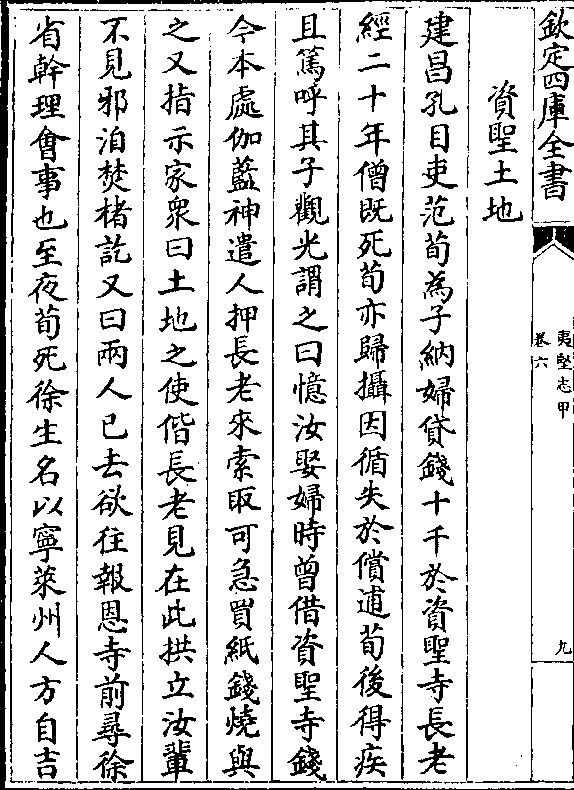 欽定四庫全書
夷堅志甲
卷六
九
資聖土地
建昌孔目吏范荀為子納婦貸錢十千於資聖寺長老
經二十年僧既死荀亦歸攝因循失於償逋荀後得疾
且篤呼其子觀光謂之曰憶汝娶婦時曽借資聖寺錢
今本處伽藍神遣人押長老來索取可急買紙錢燒與
之又指示家衆曰土地之使偕長老見在此拱立汝輩
不見邪洎焚楮訖又曰兩人已去欲往報恩寺前尋徐
省幹理會事也至夜荀死徐生名以寧萊州人方自吉